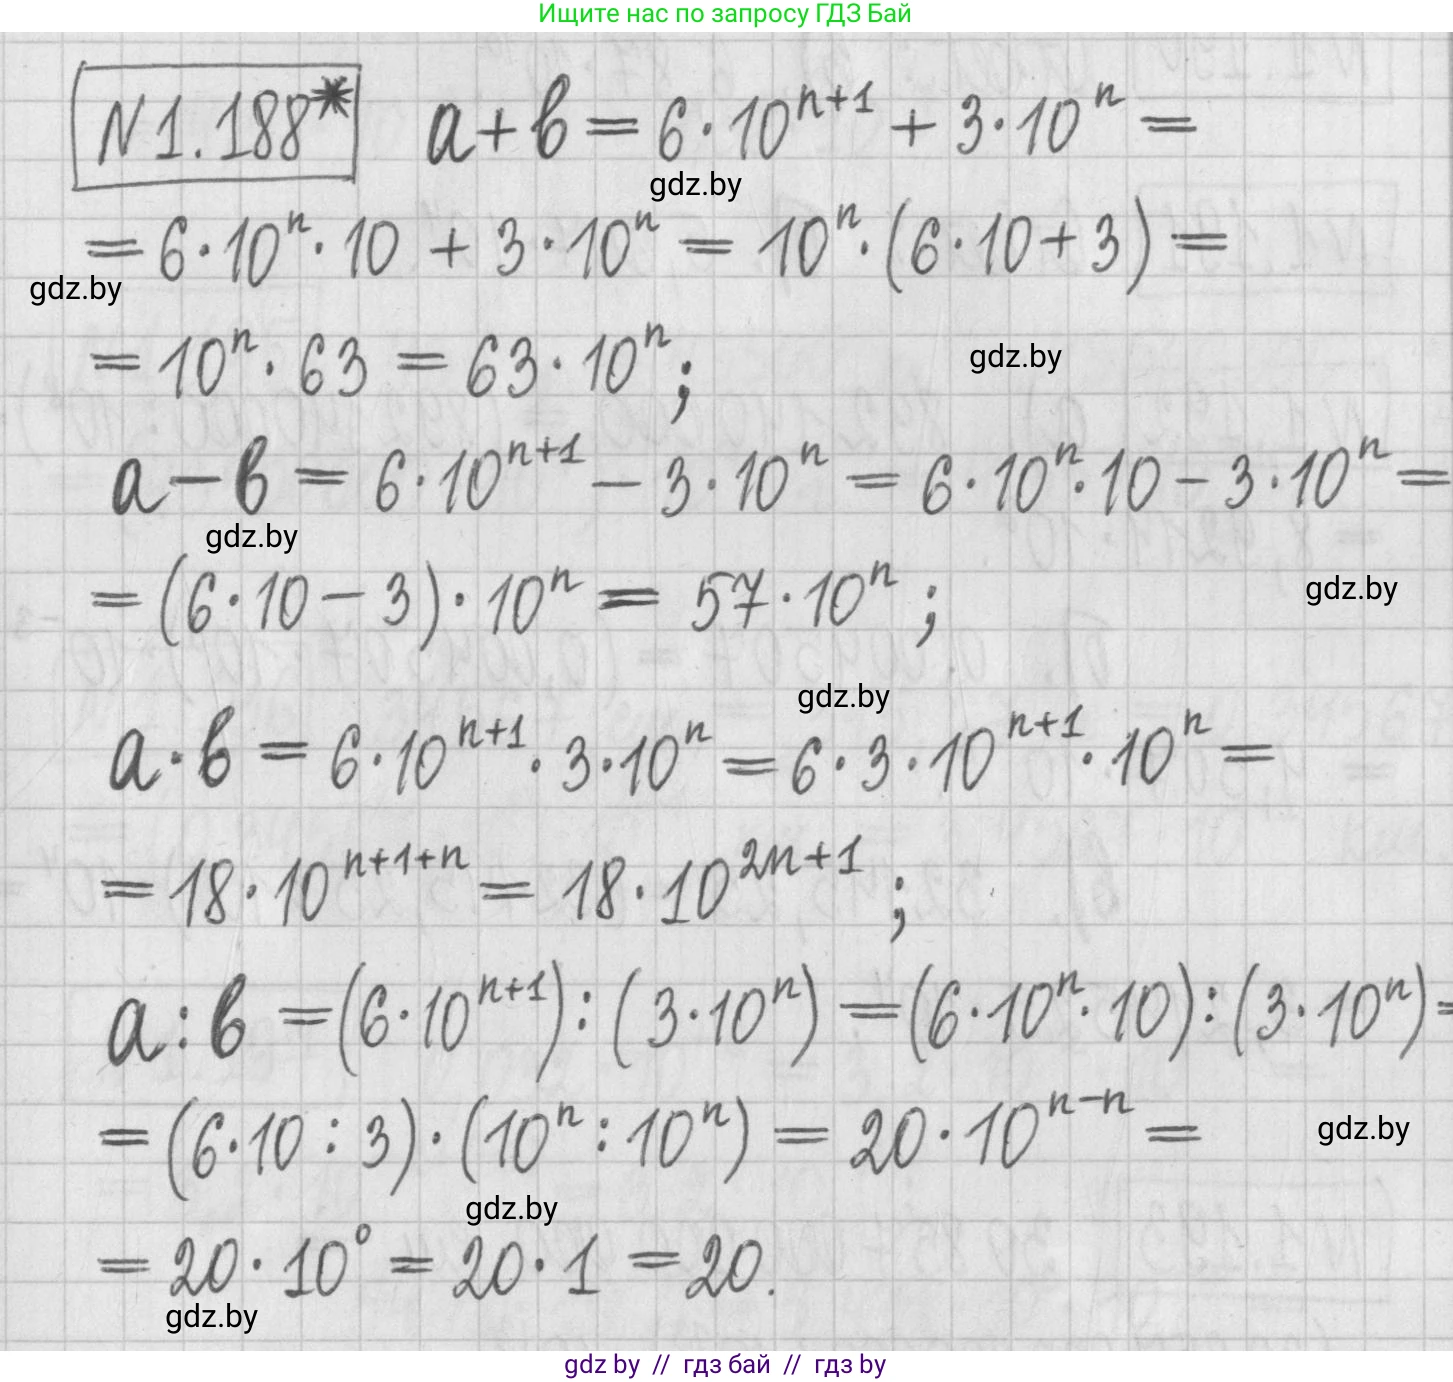 Ищите нас по запросу ГДЗ Бай
N1.188* a+b = 6·10^{n+1} + 3·10^n =
gdz.by
= 6·10^n·10 + 3·10^n = 10^n·(6·10+3) =
gdz.by
= 10^n·63 = 63·10^n;
gdz.by
a−b = 6·10^{n+1} − 3·10^n = 6·10^n·10 − 3·10^n =
gdz.by
= (6·10−3)·10^n = 57·10^n;
gdz.by
gdz.by
a·b = 6·10^{n+1}·3·10^n = 6·3·10^{n+1}·10^n =
= 18·10^{n+1+n} = 18·10^{2n+1};
a:b = (6·10^{n+1}):(3·10^n) = (6·10^n·10):(3·10^n) =
= (6·10:3)·(10^n:10^n) = 20·10^{n−n} =
gdz.by
gdz.by
= 20·10^0 = 20·1 = 20.
gdz.by
gdz by // гдз бай // гдз by